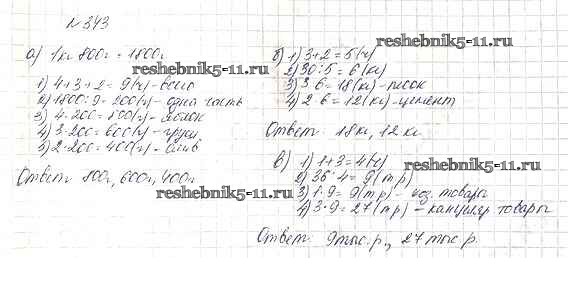 № 343
а) 1кг 800г = 1800г
reshebnik5-11.ru
1) 4+3+2 = 9(ч) - всего
2) 1800:9 = 200(г) - одна часть
3) 4·200 = 800(г) - яблок
4) 3·200 = 600(г) - груш
5) 2·200 = 400(г) - слив
Ответ: 800г, 600г, 400г
reshebnik5-11.ru
reshebnik5-11.ru
б) 1) 3+2 = 5(ч)
2) 30:5 = 6(кг)
reshebnik5-11.ru
3) 3·6 = 18(кг) - песок
4) 2·6 = 12(кг) - цемент
Ответ: 18кг, 12кг
в) 1) 1+3 = 4(ч)
reshebnik5-11.ru
2) 36:4 = 9(т р)
3) 1·9 = 9(т р) - товары
4) 3·9 = 27(т р) - канцляр товары
reshebnik5-11.ru
Ответ: 9тыс.р., 27тыс.р.